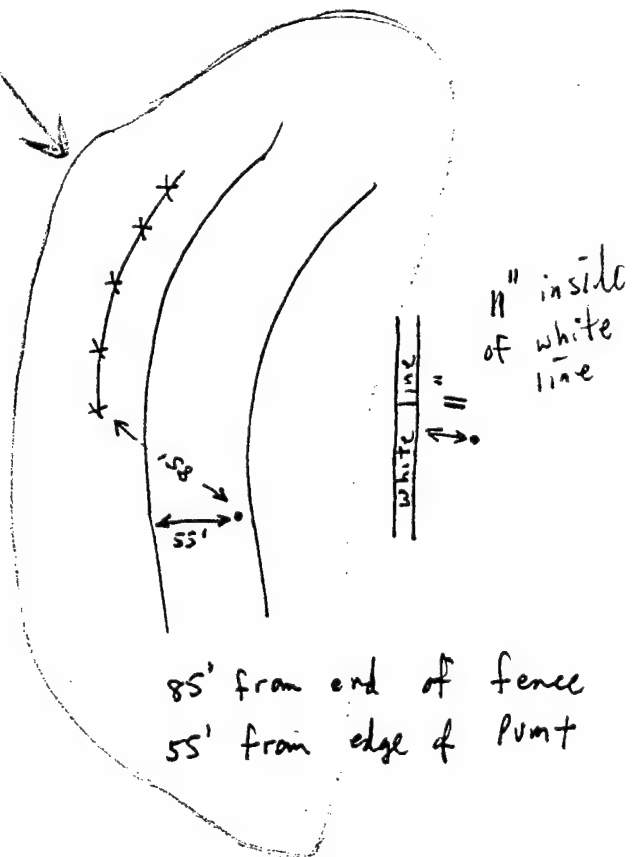 11" inside
of white
line
white line
11"
85'
55'
85' from end of fence
55' from edge of Pvmt